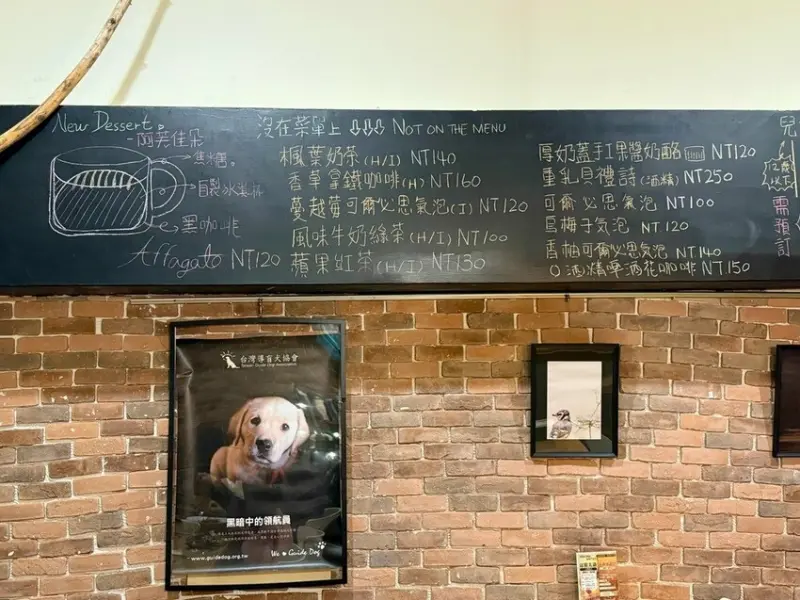 New Dessert
阿芙佳朵
焦糖醬。
自製冰淇淋
黑咖啡
Affagato NT120
沒在菜單上 ⇩⇩⇩ NOT ON THE MENU
楓葉奶茶(H/I) NT140
香草拿鐵咖啡(H) NT160
蔓越莓可爾必思氣泡(I) NT120
風味牛奶綠茶(H/I) NT100
蘋果紅茶(H/I) NT130
厚奶蓋手工果醬奶酪 NT120
重乳貝禮詩(酒精) NT250
可爾必思氣泡 NT100
烏梅子氣泡 NT120
香柚可爾必思氣泡 NT140
0酒精啤酒花咖啡 NT150
兒
需
預
訂
台灣導盲犬協會
Taiwan Guide Dog Association
黑暗中的領航員
www.guidedog.org.tw
We ♥ Guide Dog